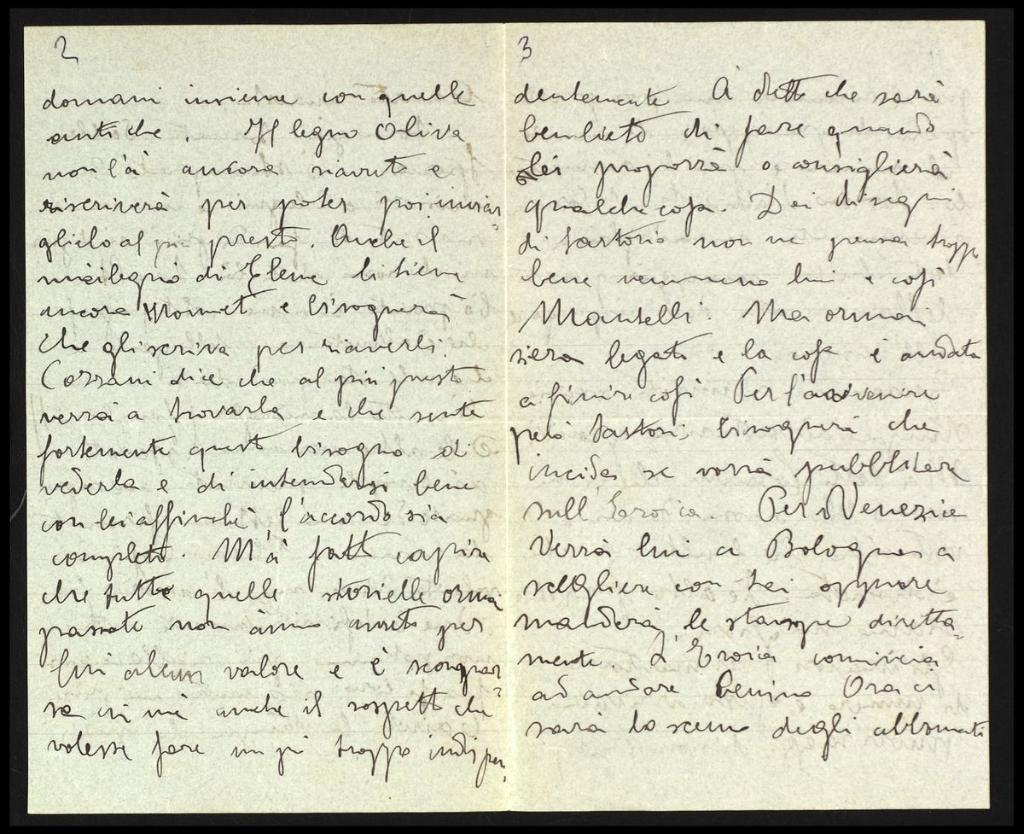 2
domani insieme con quelle
antiche. Il legno Oliva
non l'à ancora riavuto e
riscriverà per poter poi inviar-
glielo al più presto. Anche il
mio legno di Elena li tiene
ancora e bisognerà
che gli scriva per riaverli.
Cozzani dice che al più presto
verrà a trovarla e che sente
fortemente questo bisogno di
vederla e di intendersi bene
con lei affinchè l'accordo sia
completo. M'à fatto capire
che tutte quelle storielle ormai
passate non ànno avuto per
lui alcun valore e è scompar-
sa in me anche il sospetto che
volesse fare un pò troppo indipen-
3
dentemente. À detto che sarà
ben lieto di fare quando
Lei proporrà o consiglierà
qualche cosa. Dei disegni
di Sartorio non ne pensa troppo
bene nemmeno lui e così
Mantelli. Ma ormai
s'era legato e la cosa è andata
a finire così. Per l'avvenire
però Sartorio bisognerà che
incida se vorrà pubblicare
sull'Eroica. Per Venezia
verrà lui a Bologna a
scegliere con Lei oppure
manderà le stampe diretta-
mente. L'Eroica comincia
ad andare benino. Ora ci
sarà lo scemo degli abbonati